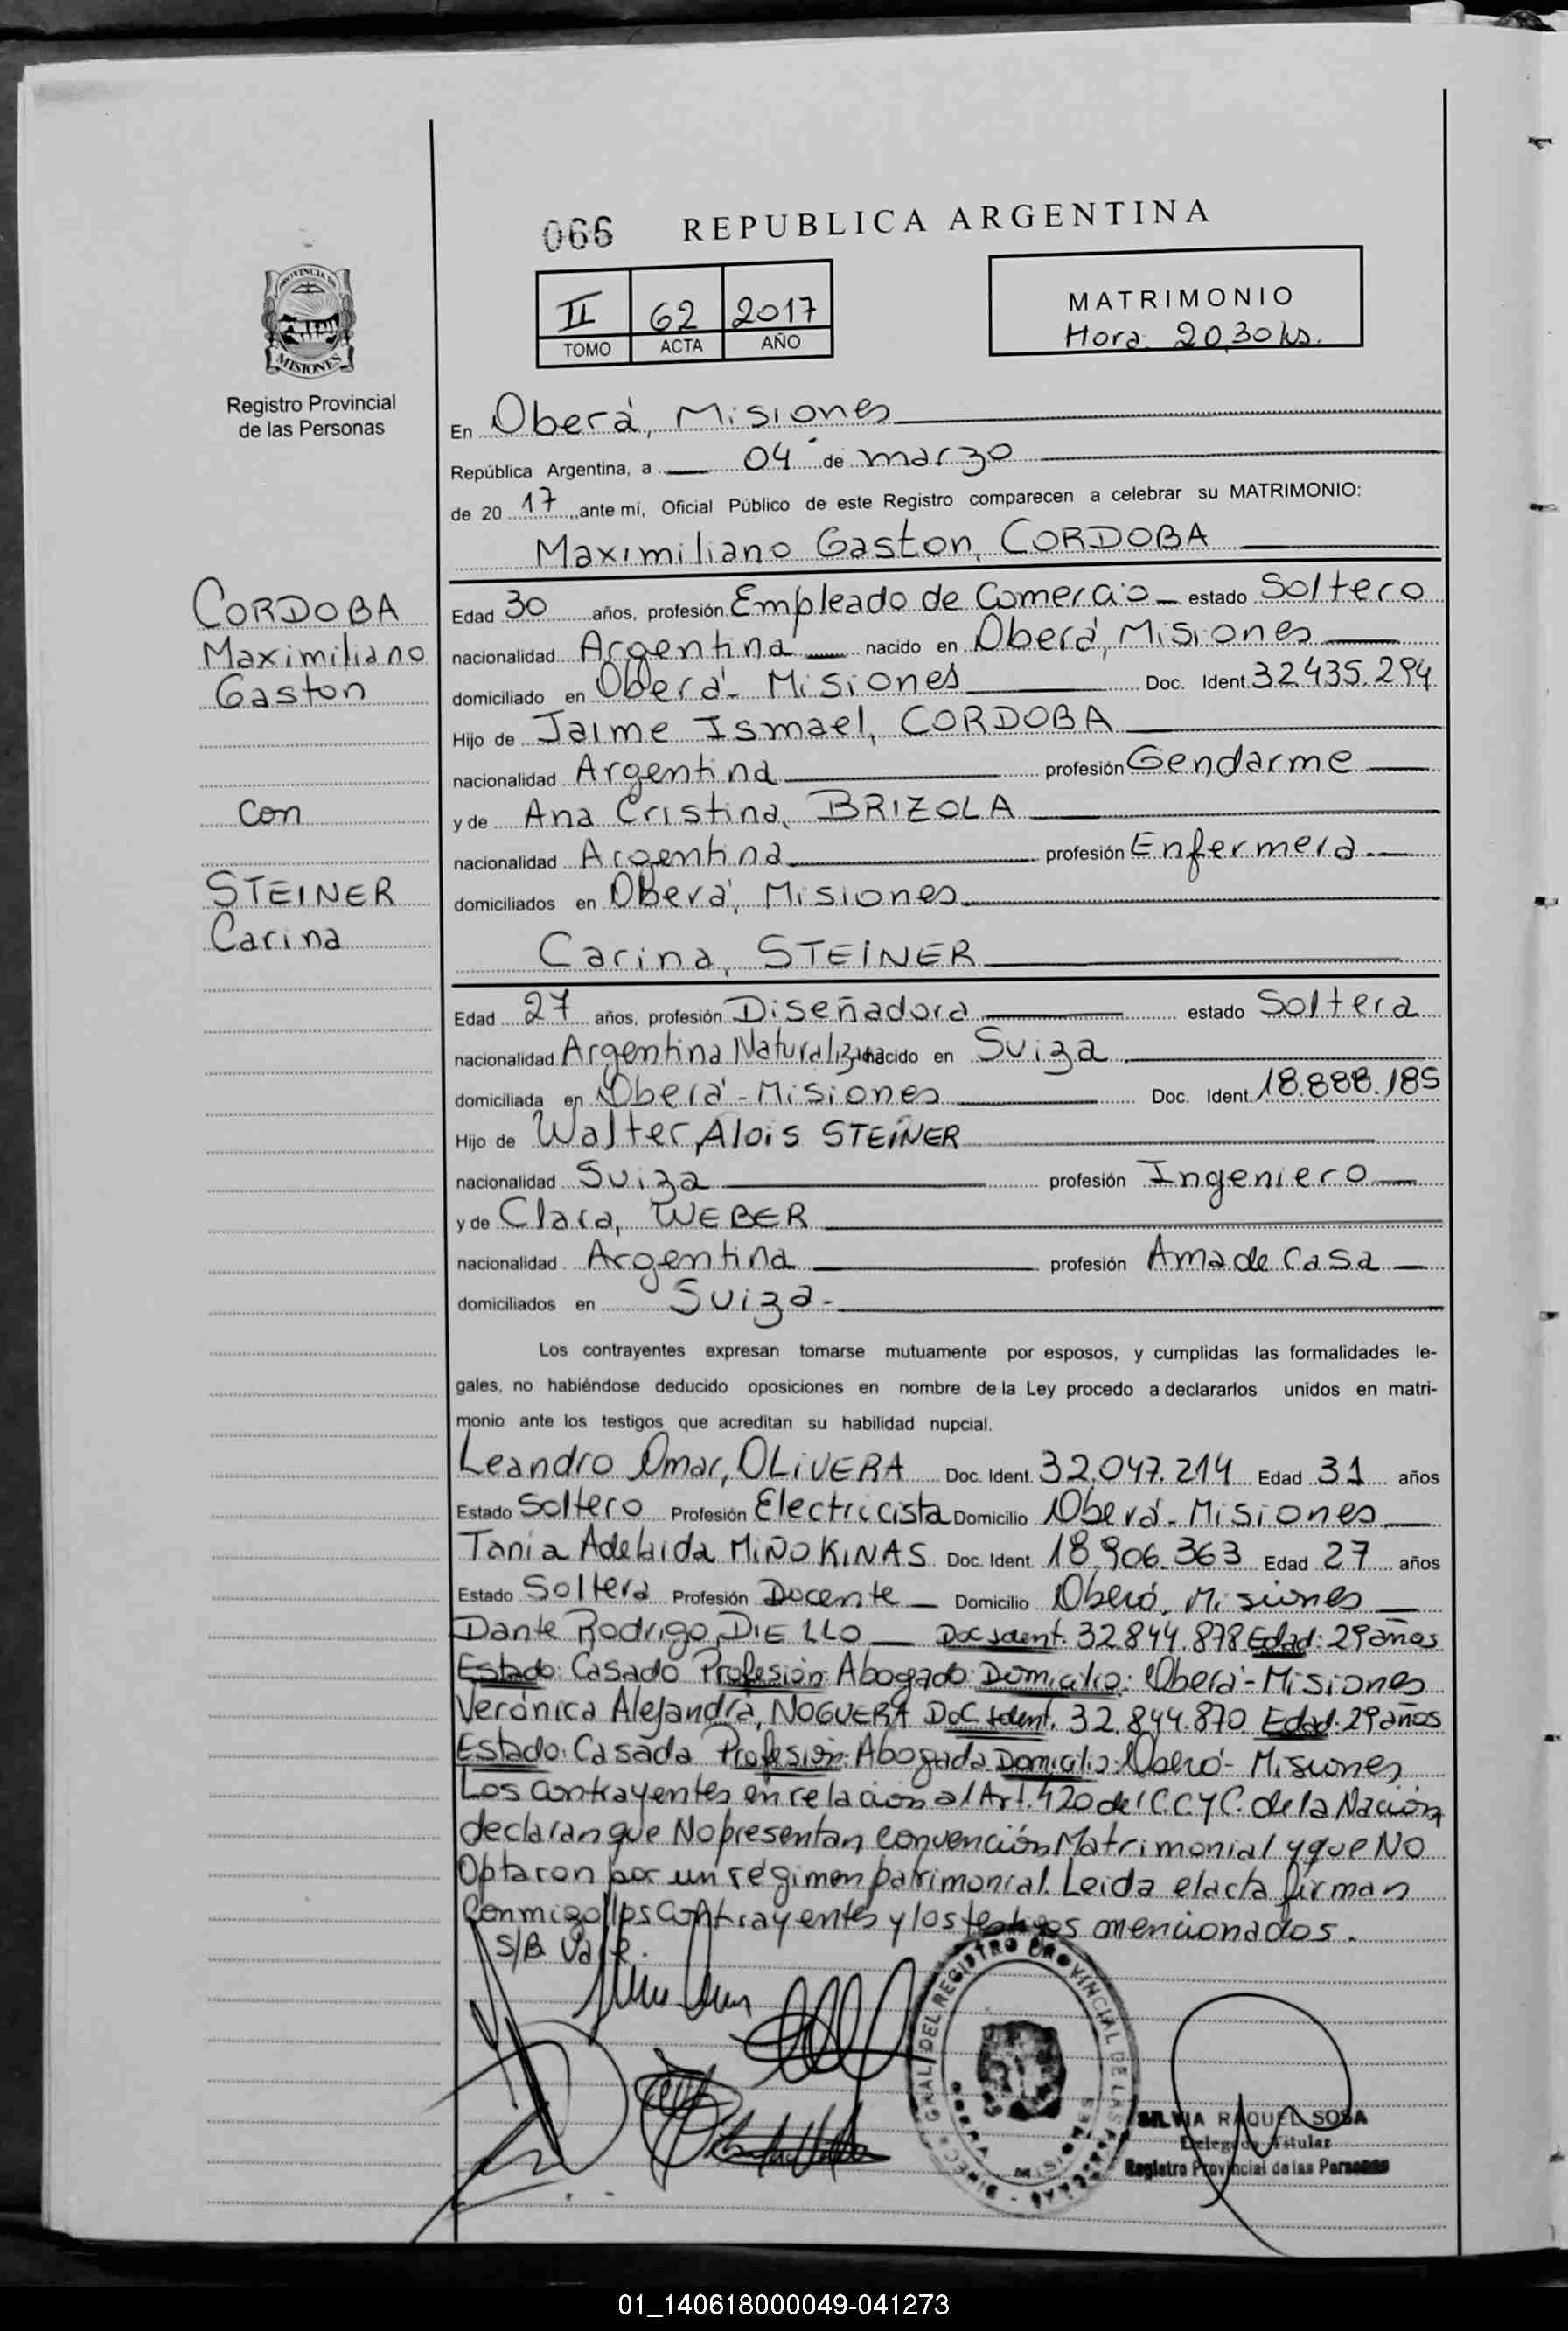 066 REPUBLICA ARGENTINA
II 62 2017
TOMO ACTA AÑO
MATRIMONIO
Hora: 20,30 hs.
PROVINCIA DE
MISIONES
Registro Provincial
de las Personas
En Oberá, Misiones
República Argentina, a 04 de marzo
de 20 17 ante mí, Oficial Público de este Registro comparecen a celebrar su MATRIMONIO:
Maximiliano Gaston, CORDOBA
CORDOBA
Maximiliano
Gaston
con
STEINER
Carina
Edad 30 años, profesión Empleado de Comercio estado Soltero
nacionalidad Argentina nacido en Oberá, Misiones
domiciliado en Oberá - Misiones Doc. Ident. 32.435.294
Hijo de Jaime Ismael, CORDOBA
nacionalidad Argentina profesión Gendarme
y de Ana Cristina, BRIZOLA
nacionalidad Argentina profesión Enfermera
domiciliados en Oberá, Misiones
Carina, STEINER
Edad 27 años, profesión Diseñadora estado Soltera
nacionalidad Argentina Naturalizada nacido en Suiza
domiciliada en Oberá - Misiones Doc. Ident. 18.888.185
Hijo de Walter, Alois STEINER
nacionalidad Suiza profesión Ingeniero
y de Clara, WEBER
nacionalidad Argentina profesión Ama de casa
domiciliados en Suiza -
Los contrayentes expresan tomarse mutuamente por esposos, y cumplidas las formalidades le-
gales, no habiéndose deducido oposiciones en nombre de la Ley procedo a declararlos unidos en matri-
monio ante los testigos que acreditan su habilidad nupcial.
Leandro Omar, OLIVERA Doc. Ident. 32.047.214 Edad 31 años
Estado Soltero Profesión Electricista Domicilio Oberá - Misiones
Tania Adelaida MIÑO KINAS Doc. Ident. 18.906.363 Edad 27 años
Estado Soltera Profesión Docente Domicilio Oberá, Misiones
Dante Rodrigo, DIELLO Doc Ident. 32.844.878 Edad: 29 años
Estado: Casado Profesión: Abogado Domicilio: Oberá - Misiones
Verónica Alejandra, NOGUERA Doc Ident. 32.844.870 Edad: 29 años
Estado: Casada Profesión: Abogada Domicilio: Oberá - Misiones
Los contrayentes en relación al Art. 420 del C C y C. de la Nación
declaran que No presentan convención Matrimonial y que NO
Optaron por un régimen patrimonial. Leida el acta firman
Conmigo los contrayentes y los testigos mencionados.
S/B Vale.
DIREC. GRAL. DEL REGISTRO PROVINCIAL DE LAS PERSONAS
OBERA MISIONES
SILVIA RAQUEL SOSA
Delegada Titular
Registro Provincial de las Personas
01_140618000049-041273